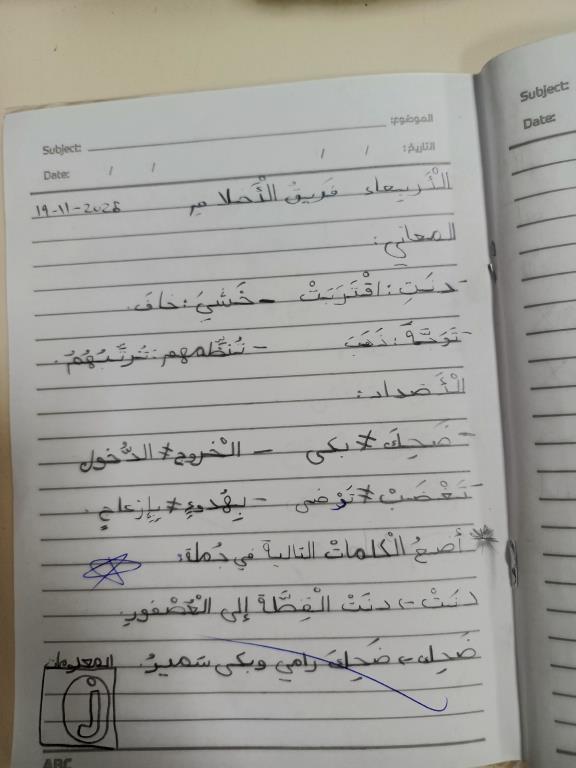 Subject: الموضوع:
Date: / / / / التاريخ:
الْأَربعاء فَريقُ الْأَحلامِ 19-11-2025
المعاني:
- دنَتِ: اقْتَرَبَتْ - خَشِيَ: خافَ.
- تَوَجَّهَ: ذَهَبَ - تُنَظِّمهم: تُرَتِّبُهُمْ.
الْأَضداد:
- ضَحِكَ ≠ بكى - الْخروج ≠ الدُّخول
- تَغْضَبْ ≠ تَوْضى - بِهُدوءٍ ≠ بِإِزعاجٍ.
* أضعُ الْكلماتْ التالية في جُملة:
دنَتْ ← دنَتْ الْقِطَّة إلى الْعُصْفورِ.
ضَحِك ← ضَحِكَ رامي وبكى سَميرُ. المعلومات
i
ABC
Subject:
Date: